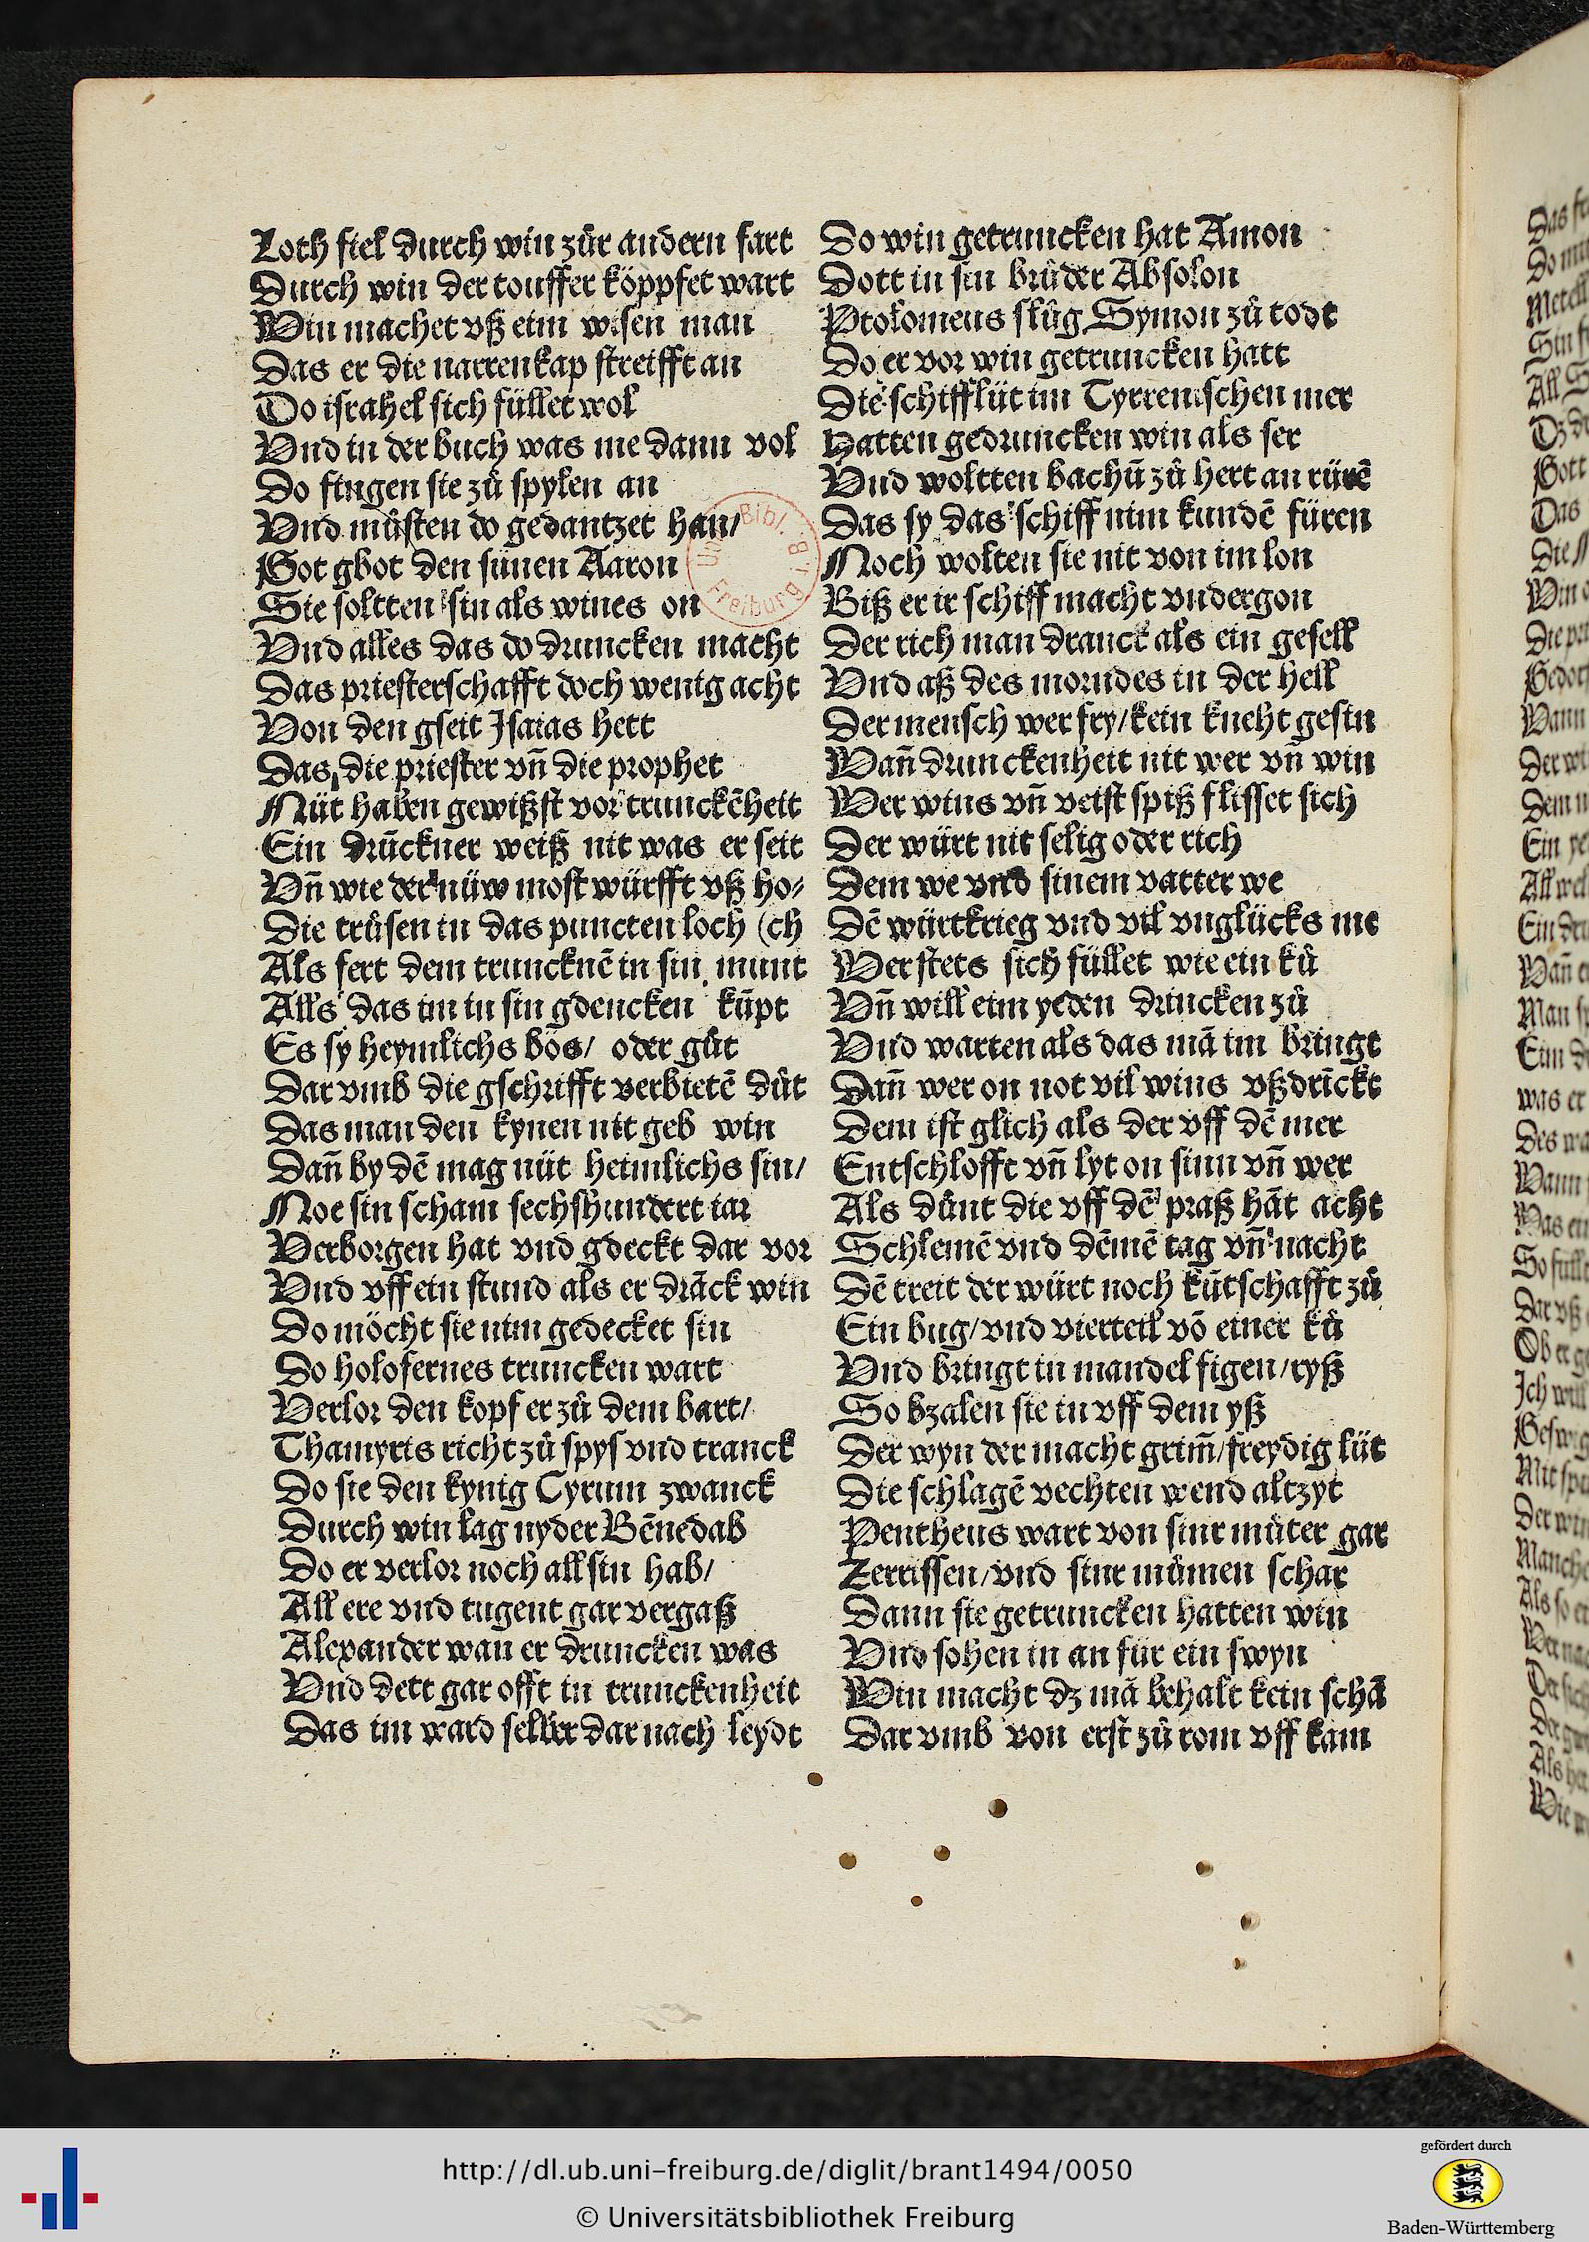 Loth fiel durch win zůr andern fart
Durch win der touffer köppfet wart
Win machet vß eim wisen man
Das er die narrenkap streifft an
Do israhel sich füllet wol
Vnd in der buch was me dann vol
Do fingen sie zů spylen an
Vnd můsten do gedantzet han/
Got gbot den sünen Aaron
Sie soltten sin als wines on
Vnd alles das do druncken macht
Das priesterschafft doch wenig acht
Von den gseit Isaias hett
Das die priester vn̄ die prophet
Nüt haben gewißst vor trunckēheit
Ein drūckner weiß nit was er seit
Vn̄ wie der nüw most würfft vß ho⸗
Die trůsen in das puncten loch (ch
Als fert dem truncknē in sin munt
Alls das im in sin gdencken kūpt
Es sy heymlichs bös/ oder gůt
Dar vmb die gschrifft verbietē důt
Das man den kynen nit geb win
Dan̄ by dē mag nüt heimlichs sin/
Noe sin scham sechshundert iar
Verborgen hat vnd gdeckt dar vor
Vnd vff ein stund als er drāck win
Do möcht sie nim gedecket sin
Do holofernes truncken wart
Verlor den kopf er zů dem bart/
Thamyris richt zů spys vnd tranck
Do sie den kynig Cyrum zwanck
Durch win lag nyder Bēnedab
Do er verlor noch all sin hab/
All ere vnd tugent gar vergaß
Alexander wan er druncken was
Vnd dett gar offt in trunckenheit
Das im ward selber dar nach leydt
Do win getruncken hat Amon
Dott in sin brůder Absolon
Ptolomeus slůg Symon zů todt
Do er vor win getruncken hatt
Die schifflüt im Tyrrenischen mer
Hatten gedruncken win als ser
Vnd woltten bachū zů hert an rürē
Das sy das schiff nim kundē füren
Noch wolten sie nit von im lon
Biß er ir schiff macht vndergon
Der rich man dranck als ein gesell
Vnd aß des morndes in der hell
Der mensch wer fry/kein kneht gesin
Wan̄ drunckenheit nit wer vn̄ win
Wer wins vn̄ veist spiß flisset sich
Der würt nit selig oder rich
Dem we vnd sinem vatter we
Dē würt krieg vnd vil vnglücks me
Wer stets sich füllet wie ein ků
Vn̄ will eim yeden drincken zů
Vnd warten als das mā im bringt
Dan̄ wer on not vil wins vßdrīckt
Dem ist glich als der vff dē mer
Entschlofft vn̄ lyt on sinn vn̄ wer
Als důnt die vff dē praß hāt acht
Schlemē vnd dēmē tag vn̄ nacht
Dē treit der würt noch kūtschafft zů
Ein bug/vnd vierteil vō einer ků
Vnd bringt in mandel figen/ryß
So bzalen sie in vff dem yß
Der wyn der macht grim̄/freydig lüt
Die schlagē vechten wend altzyt
Pentheus wart von sinr můter gar
Zerrissen/vnd sinr můmen schar
Dann sie getruncken hatten win
Vnd sohen in an für ein swyn
Win macht dz mā behalt kein schā
Dar vmb von erst zů rom vff kam
http://dl.ub.uni-freiburg.de/diglit/brant1494/0050
© Universitätsbibliothek Freiburg
gefördert durch
Baden-Württemberg